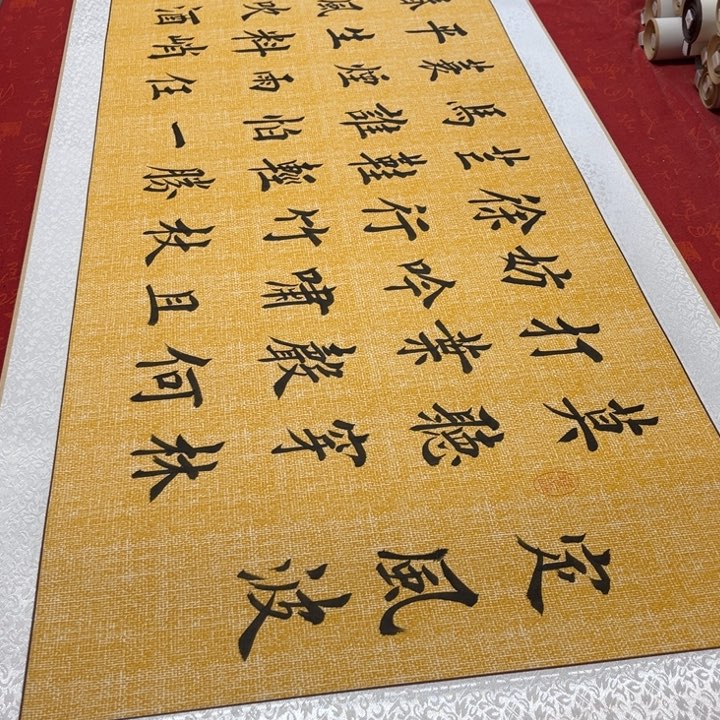 定風波
莫聽穿林
打葉聲何
妨吟嘯且
徐行竹杖
芒鞋輕勝
馬誰怕一
蓑煙雨任
平生料峭
風吹酒